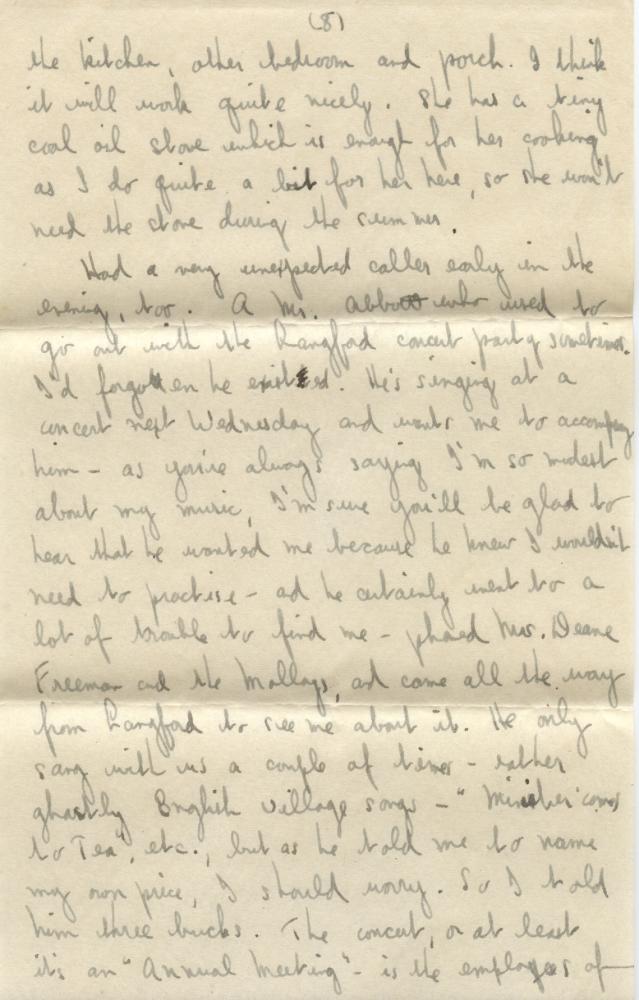 (8)
the kitchen, other bedroom and porch. I think
it will work quite nicely. She has a tiny
coal oil stove which is enough for her cooking
as I do quite a bit for her here, so she won't
need the stove during the summer.
Had a very unexpected caller early in the
evening, too. A Mr. Abbott who used to
go out with the Langford concert party sometimes.
I'd forgotten he existed. He's singing at a
concert next Wednesday and wants me to accompany
him - as you're always saying I'm so modest
about my music, I'm sure you'll be glad to
hear that he wanted me because he knew I wouldn't
need to practise - ad he certainly went to a
lot of trouble to find me - phoned Mrs. Deane
Freeman and the Mollays, and came all the way
from Langford to see me about it. He only
sang with us a couple of times - rather
ghastly English village songs - "Minister comes
to Tea", etc., but as he told me to name
my own price, I should worry. So I told
him three bucks. The concert, or at least
it's an "Annual Meeting" - is the employees of